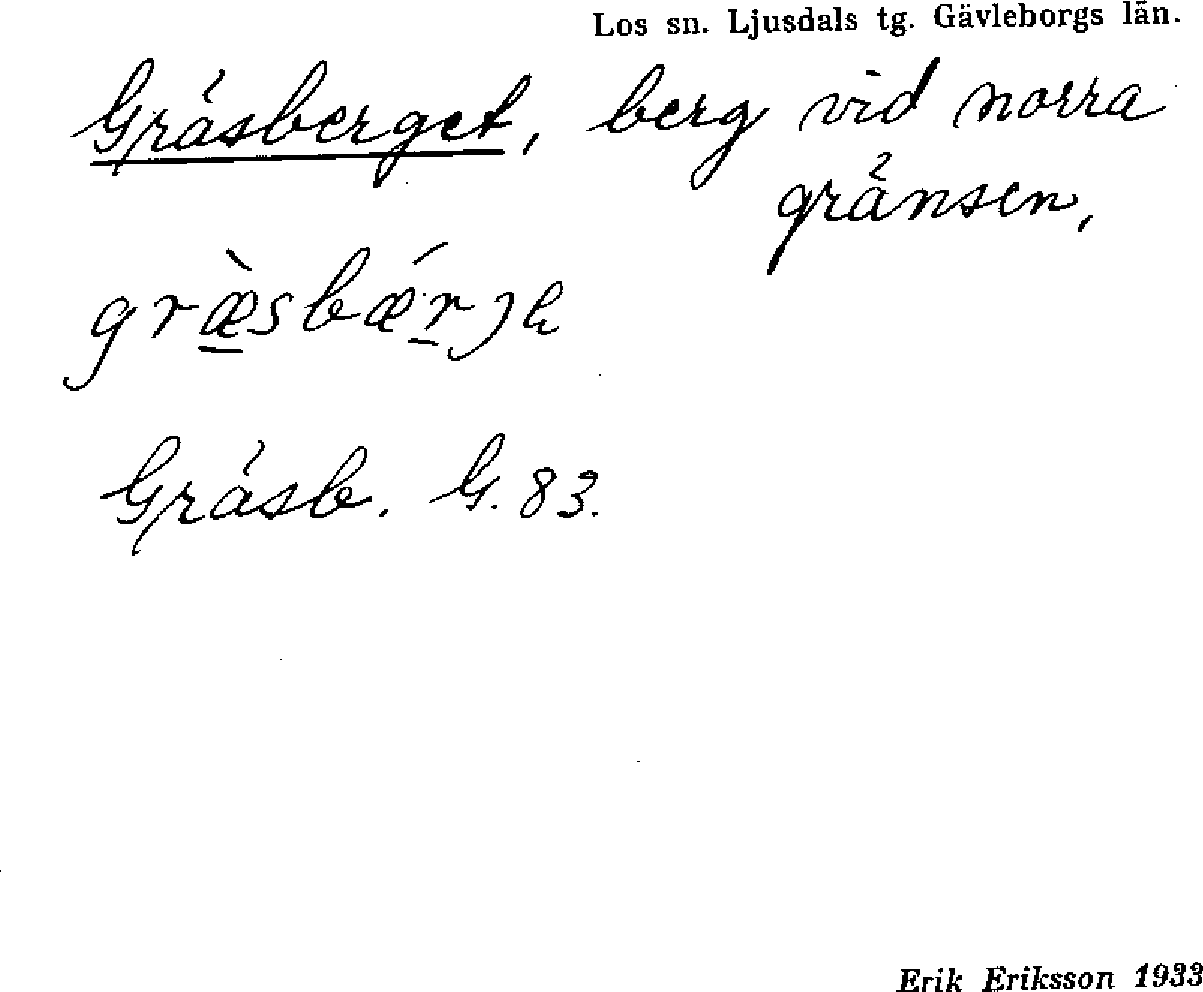 Los sn. Ljusdals tg. Gävleborgs län.
Gräsberget, berg vid norra
gränsen,
græ̀sbǽrjə
Gräsb. G. 83.
Erik Eriksson 1933